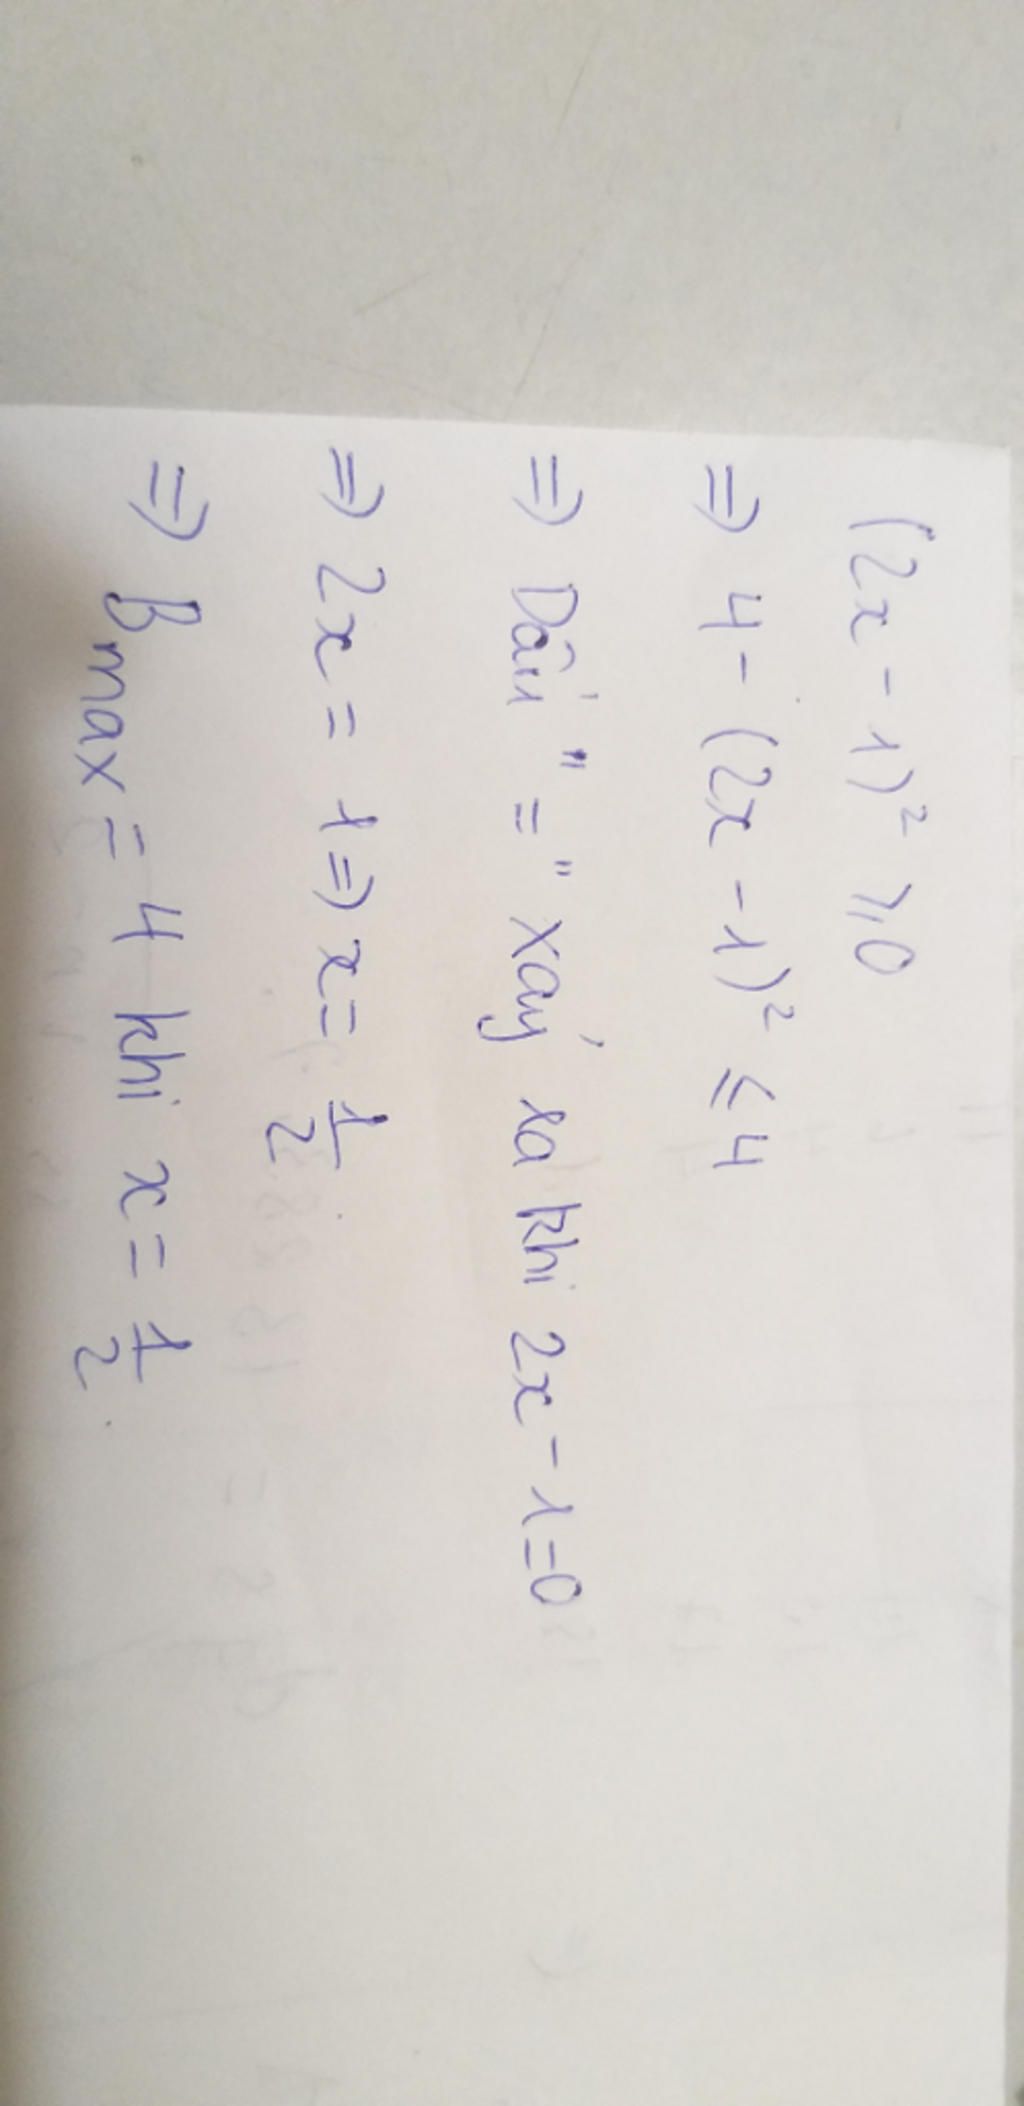 (2x - 1)² ⩾ 0
=> 4 - (2x - 1)² ≤ 4
=> Dấu "=" xảy ra khi 2x - 1 = 0
=> 2x = 1 => x = 1/2
=> Bmax = 4 khi x = 1/2.